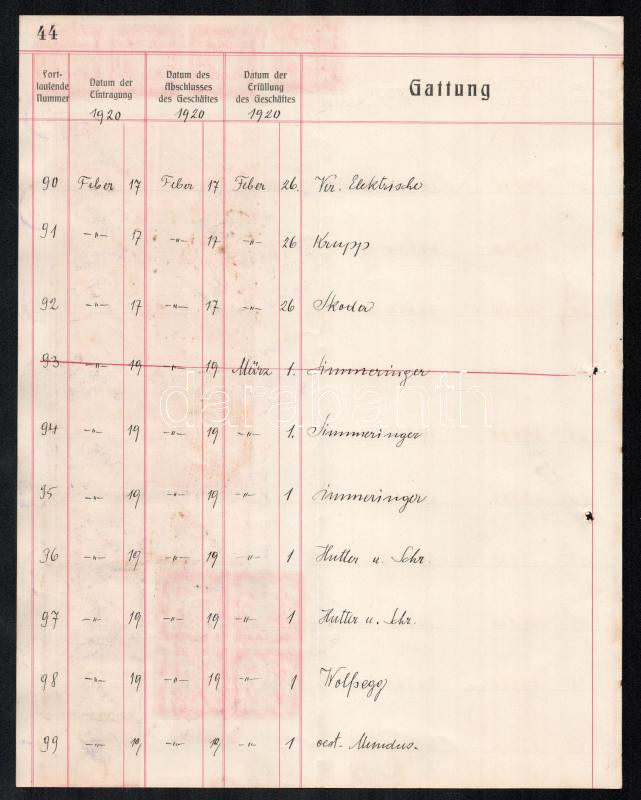 44
Fort-laufende Nummer | Datum der Eintragung 1920 | Datum des Abschlusses des Geschäftes 1920 | Datum der Erfüllung des Geschäftes 1920 | Gattung
90 Feber 17 Feber 17 Feber 26. Ver. Elektrische
91 -"- 17 -"- 17 -"- 26 Krupp
92 -"- 17 -"- 17 -"- 26 Skoda
93 -"- 19 -"- 19 März 1. Simmeringer
94 -"- 19 -"- 19 -"- 1. Simmeringer
95 -"- 19 -"- 19 -"- 1 Simmeringer
96 -"- 19 -"- 19 -"- 1 Hutter u. Schr.
97 -"- 19 -"- 19 -"- 1 Hutter u. Schr.
98 -"- 19 -"- 19 -"- 1 Wolfsegg
99 -"- 19 -"- 19 -"- 1 oest. Mundus.
darabanth